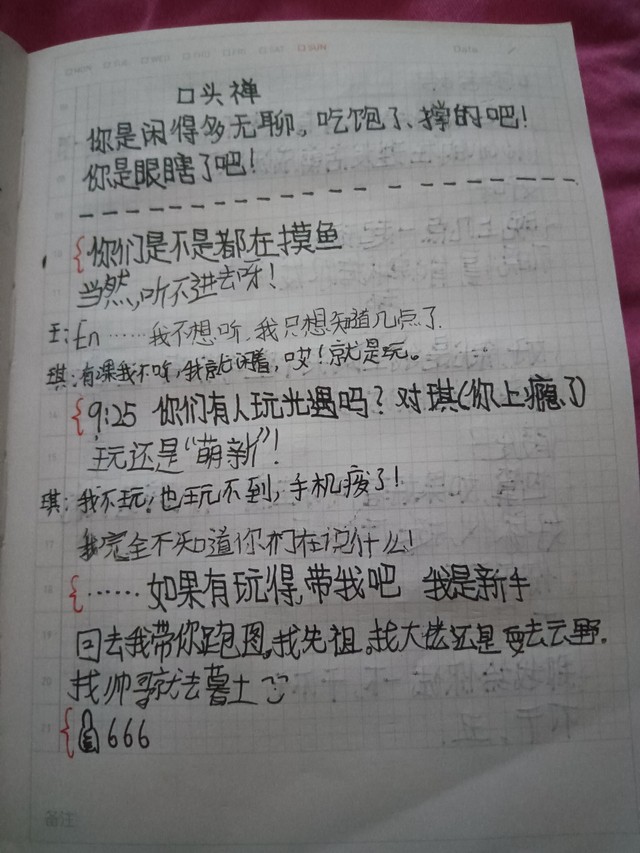 MON TUE WED THU FRI SAT SUN Date
口头禅
你是闲得多无聊。吃饱了、撑的吧!
你是眼瞎了吧!
{你们是不是都在摸鱼
当然,听不进去呀!
王:En……我不想听,我只想知道几点了.
琪:有课我不听,我就闲着,哎!就是玩。
{9:25 你们有人玩光遇吗?对琪(你上瘾了)
玩还是“萌新”!
琪:我不玩,也玩不到,手机废了!
我完全不知道你们在说什么!
{……如果有玩得,带我吧 我是新手
回去我带你跑图。找先祖。找大佬还是要去云野.
找帅哥就去暮土
{666
备注